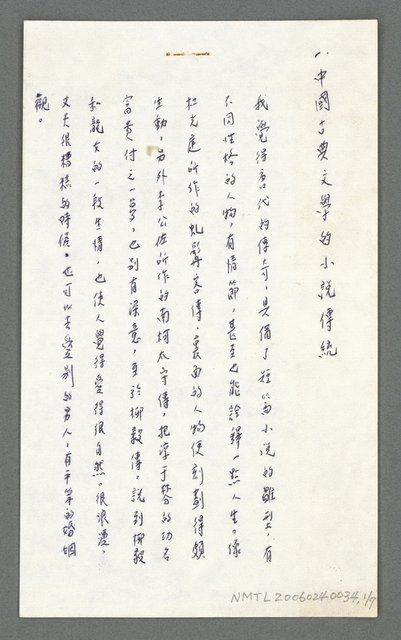 八、中國古典文學的小說傳統
我覺得唐代的傳奇，具備了短篇小說的雛型，有
不同性格的人物，有情節，甚至也能詮釋一點人生。像
杜光庭所作的虬髯客傳，裏面的人物便刻劃得頗
生動，另外李公佐所作的南柯太守傳，把淳于棼的功名
富貴付之一夢，也別有深意，至於柳毅傳，說到柳毅
和龍女的一段生情，也使人覺得愛得很自然。很浪漫，
丈夫很糟糕的時候。也可以去愛別的男人，有平等的婚姻
觀。
NMTL20060240034,1/7